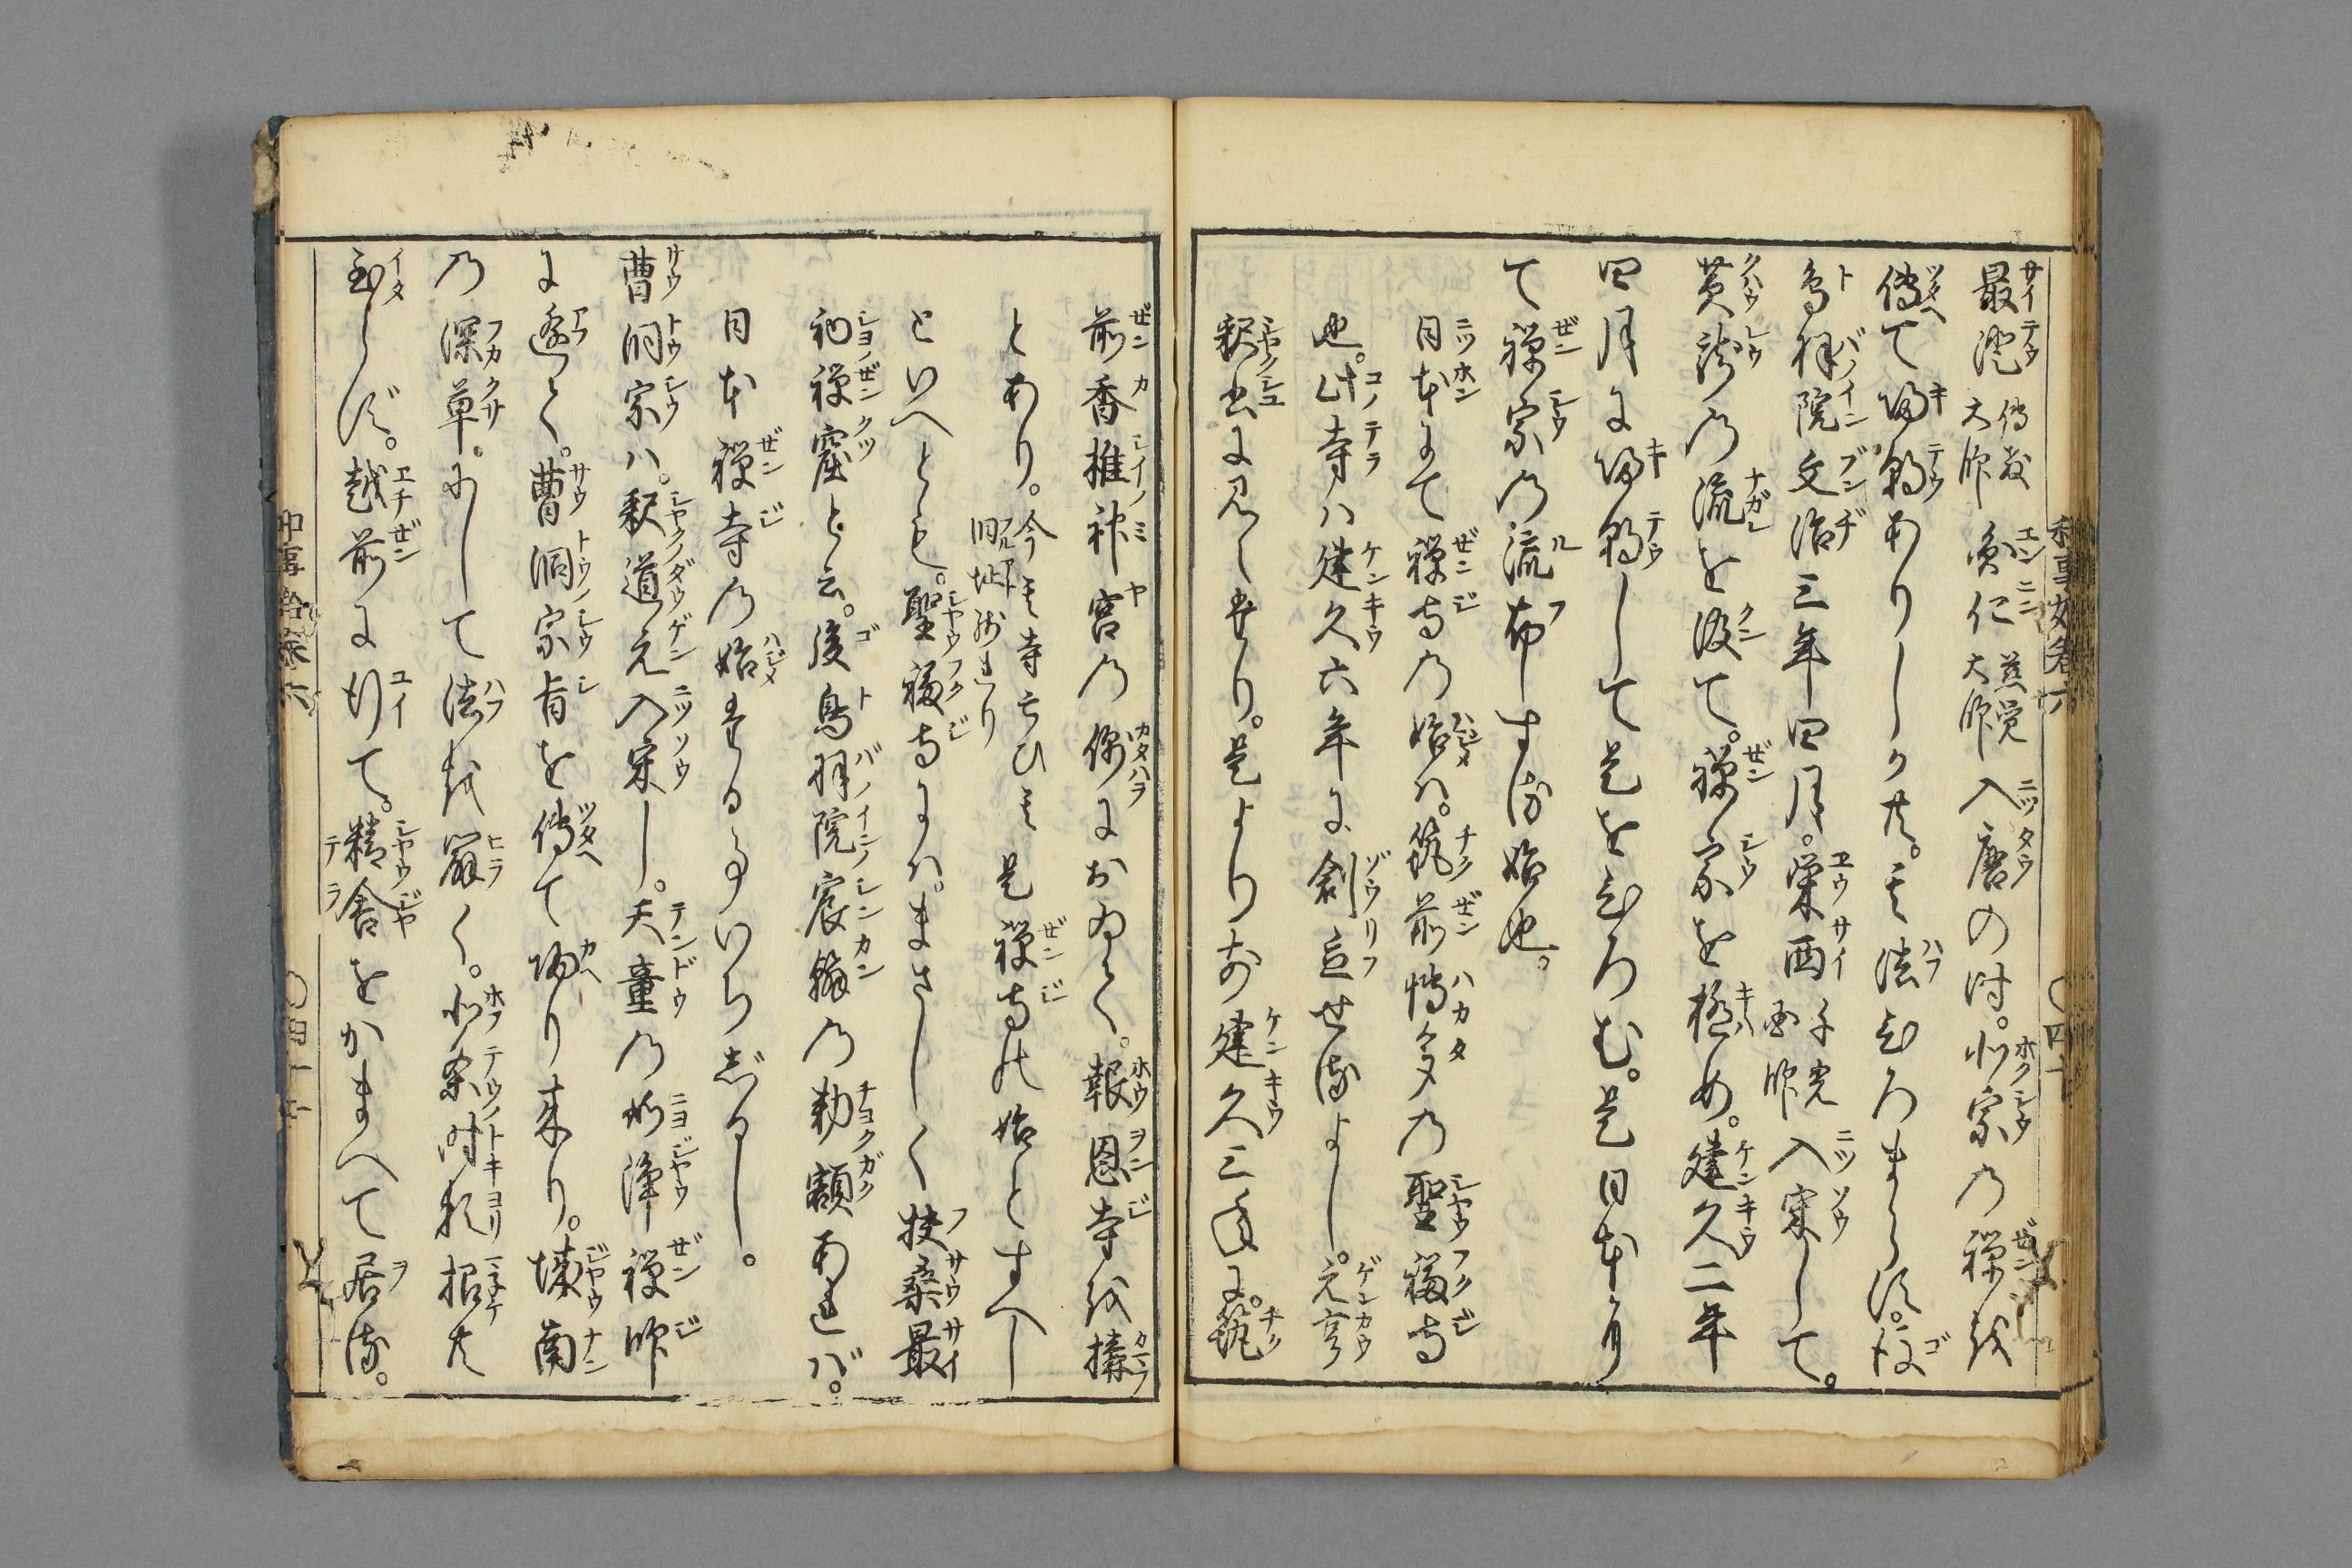 最澄傳教大師圓仁慈覚大師入唐の時。北宗乃禅を
傳て帰朝ありしかど。其法ひろまらず。後
鳥羽院文治三年四月。栄西千光国師入宋して。
黄龍乃流を汲て。禅宗を極め。建久二年
四月に帰朝して是をひろむ。是日本に
て禅宗乃流布する始也。
日本にて禅寺乃始ハ。筑前博多乃聖福寺
也。此寺ハ建久六年に創立せるよし。元亨
釈書に見えたり。是より前建久三年に。筑
前香椎神宮乃傍におゐて。報恩寺を搆
とあり。今其寺亡ひ其旧址残れり是禅寺の始とすへし
といへとも。聖福寺にハ。まさしく扶桑最
初禅窟と云。後鳥羽院宸翰乃勅額あれバ。
日本禅寺乃始たる事いちじるし。
曹洞宗ハ。釈道元入宋し。天童乃如浄禅師
に逢て。曹洞宗旨を傳て帰り来り。城南
乃深草。にして法を開く。北条時頼招け共
至らず。越前に行て。精舎をかまへて居る。